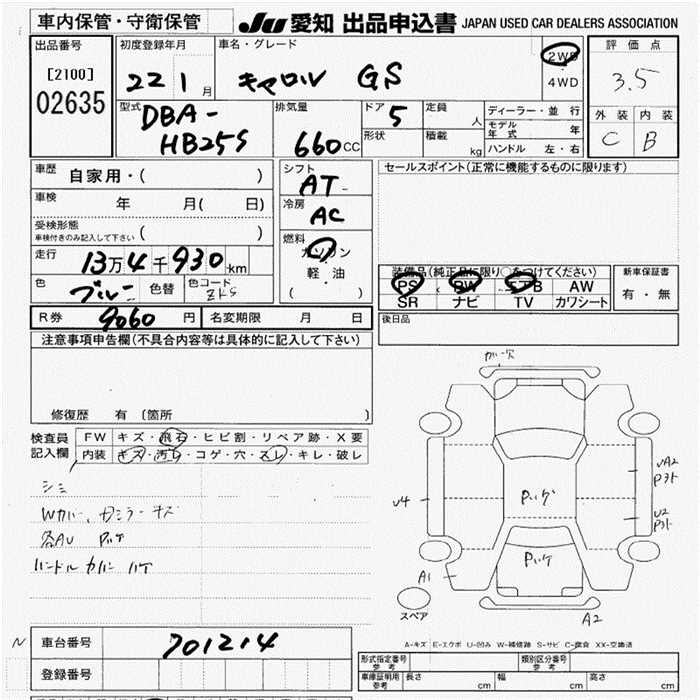 車内保管・守衛保管 JU 愛知 出品申込書 JAPAN USED CAR DEALERS ASSOCIATION
出品番号
[2100]
02635
初度登録年月
22 1 月
車名・グレード
キャロル GS
2WD
4WD
評価点
3.5
外装 内装
C B
型式
DBA-
HB25S
排気量
660 CC
ドア
5
形状
定員
人
積載
kg
ディーラー・並行
モデル年式 年
ハンドル 左・右
車歴
自家用・( )
車検
年 月( 日)
受検形態
車検付きのみ記入して下さい ( )
走行
13万4千930km
色
ブルー
色替
色コード
ZKS
シフト
AT
冷房
AC
燃料
ガソリン
・
軽・油
( )
セールスポイント(正常に機能するものに限ります)
装備品(純正品に限り○をつけてください)
PS PW エアB AW
SR ナビ TV カワシート
新車保証書
有・無
後日品
R券 9060 円 名変期限 月 日
注意事項申告欄(不具合内容等は具体的に記入して下さい)
修復歴 有 〔箇所 〕
検査員
記入欄
FW キズ・飛石・ヒビ割・リペア跡・X要
内装 キズ・汚レ・コゲ・穴・スレ・キレ・破レ
シミ
Wカバー、カミラーキズ
各AU
ハンドルカバーハゲ
ガハ穴
U4
A1
A2
U2
スペア
A-キズ E-エクボ U-凹み W-補修跡 S-サビ C-腐食 XX-交換済
N 車台番号 701214
登録番号
形式指定番号
参考
類別区分番号
参考
車庫証明用
参考
長さ cm 幅 cm 高さ cm